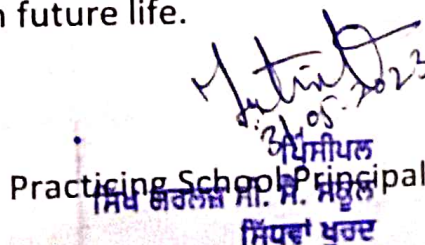 future life.
31.05.2023
ਪ੍ਰਿੰਸੀਪਲ
Practicing School Principal
ਸਿੱਖ ਗਰਲਜ਼ ਸੀ. ਸੈ. ਸਕੂਲ
ਸਿੱਧਵਾਂ ਖੁਰਦ